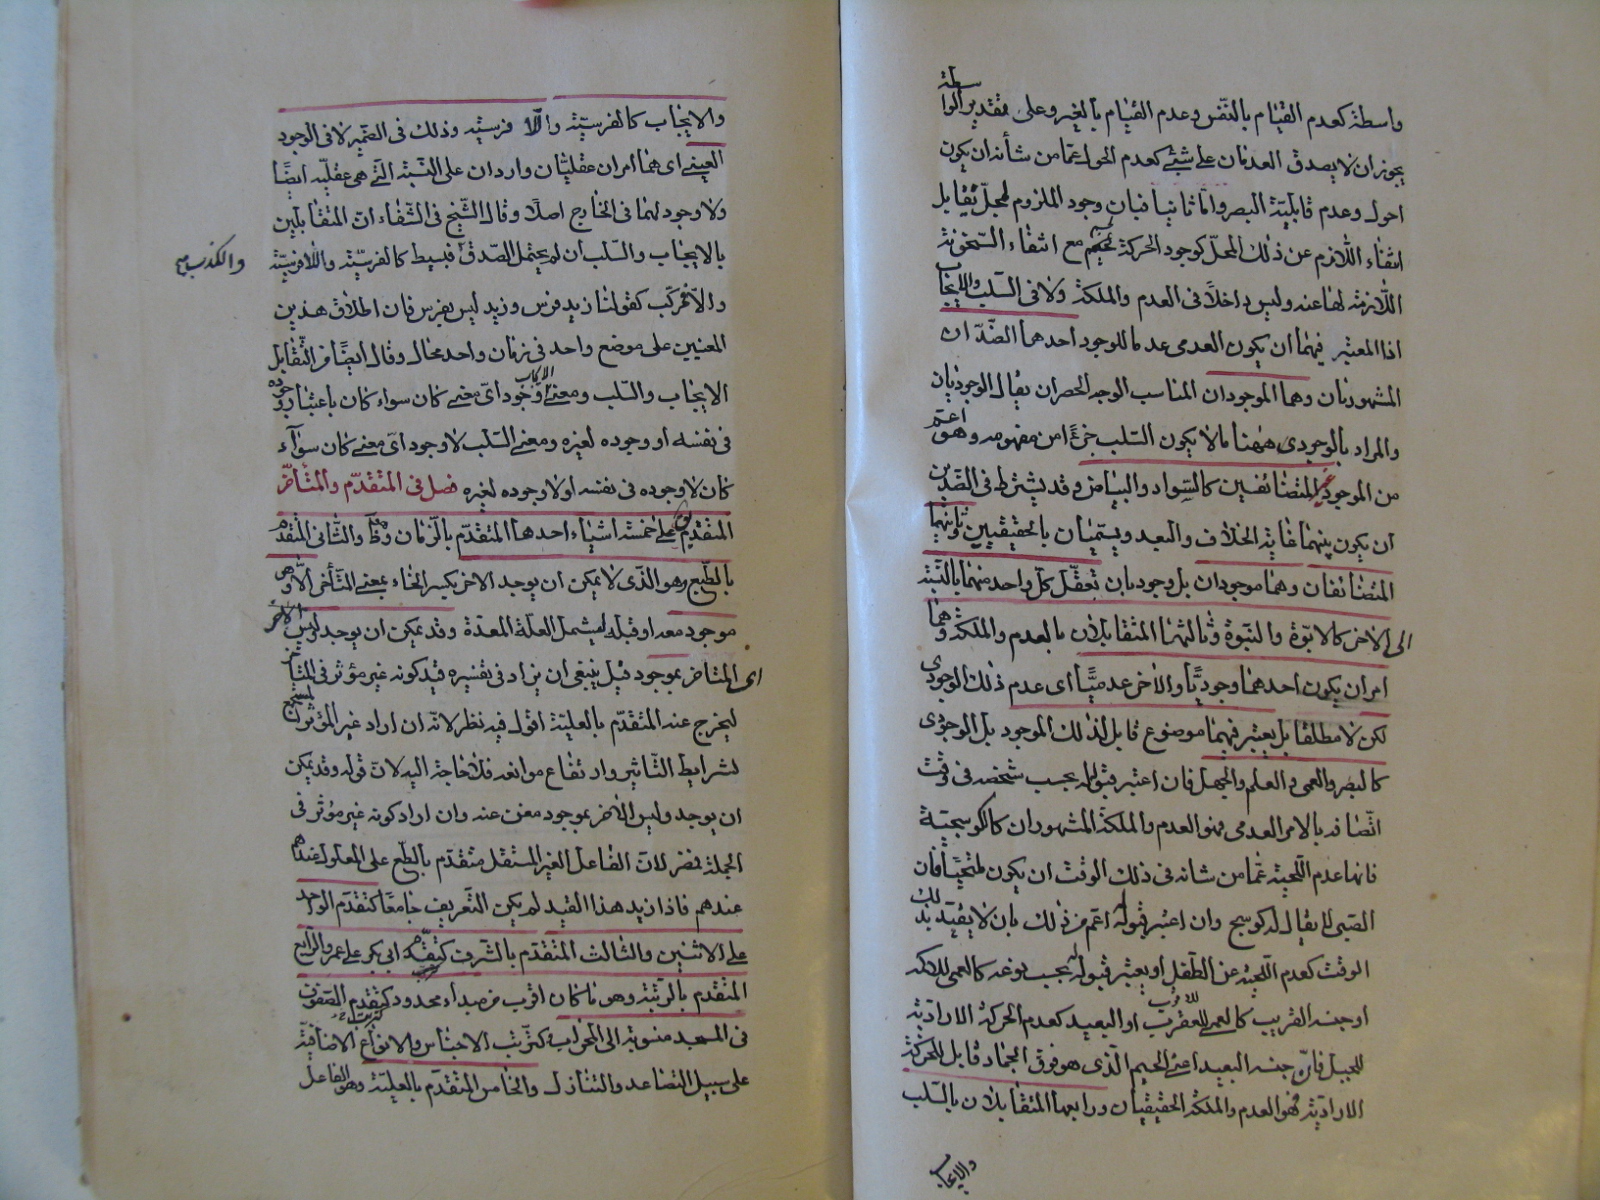 واسطة كعدم القيام بالنفس وعدم القيام بالغير وعلى تقدير الواسطة
يجوز ان لا يصدق العدمان على شئ كعدم الحول عما من شأنه ان يكون
احول وعدم قابلية البصر واما ثانيا فبان وجود الملزوم لمحل يقابل
انتفاء اللازم عن ذلك المحل كوجود الحركة لجسم مع انتفاء السخونة
اللازمة لها عنه وليس داخلاً فى العدم والملكة ولا فى السلب والايجاب
اذا المعتبر فيهما ان يكون العدمى عدما للوجود احدهما الضدان
المشهوريان وهما الموجودان المناسب الوجه الحصر ان يقال الوجوديان
والمراد بالوجودى ههنا ما لا يكون السلب جزءً امن مفهومه وهو اعم
من الموجود غير المتضائفين كالسواد والبياض وقد يشترط فى الضدين
ان يكون بينهما غاية الخلاف والبعد ويسميان بالحقيقيين وثانيهما
المتضائفان وهما موجودان بل وجوديان تعقل كل واحد منهما بالنسبة
الى الاخر كالابوة والبنوة وثالثهما المتقابلان بالعدم والملكة وهما
امران يكون احدهما وجوديًّا والاخر عدميًّا اى عدم ذلك الوجودى
لكن لا مطلقا بل يعتبر فيهما موضوع قابل لذلك الموجود بل الوجودى
كالبصر والعمى والعلم والجهل فان اعتبر قبوله بحسب شخصه فى وقت
اتصافه بالامر العدمى فهو العدم والملكة المشهوران كالكوسجية
فانها عدم اللحية عما من شانه فى ذلك الوقت ان يكون ملتحيًا فان
الصبى لا يقال له كوسج وان اعتبر قبوله اعم من ذلك بان لا يقيد بذلك
الوقت كعدم اللحية عن الطفل او يعتبر قبوله بحسب نوعه كالعمى للاكمه
او جنسه القريب كالعمى للعقرب او البعيد كعدم الحركة الارادية
للجبل فان جنسه البعيد اعنى الجسم الذى هو فوق الجماد قابل للحركة
الارادية فهو العدم والملكة الحقيقيان ورابعها المتقابلان بالسلب
والايجاب
والايجاب كالفرسية واللا فرسية وذلك فى الضمير لا فى الوجود
العينى اى هما امران عقليان واردان على النسبة التى هى عقلية ايضًا
ولا وجود لهما فى الخارج اصلا وقال الشيخ فى الشفاء ان المتقابلين
بالايجاب والسلب ان لم يحتمل الصدق فبسيط كالفرسية واللافرسية
والكذب صح
والا فمركب كقولنا زيد فرس وزيد ليس بفرس فان اطلاق هذين
المعنيين على موضع واحد فى زمان واحد محال وقال ايضًا من التقابل
الايجاب والسلب ومعنى الايجاب وجود اى معنى كان سواء كان باعتبار وجوده
فى نفسه او وجوده لغيره ومعنى السلب لا وجود اى معنى كان سواء
كان لا وجوده فى نفسه او لا وجوده لغيره فصل فى المتقدم والمتأخر
المتقدم يق على خمسة اشياء احدها المتقدم بالزمان وهو ظ والثانى المتقدم
بالطبع وهو الذى لا يمكن ان يوجد الاخر بكسر الخاء بمعنى المتأخر الا وهو
موجود معه او قبله ليشمل العلة المعدة وقد يمكن ان يوجد وليس الاخر
اى المتاخر بموجود قيل ينبغى ان يزاد فى تفسيره قيد كونه غير مؤثر فى المتاخر
ليخرج عنه المتقدم بالعلية اقول فيه نظر لانه ان اراد غير المؤثر المستجمع
لشرايط التاثير وارتفاع موانعه فلا حاجة اليه لان قوله وقد يمكن
ان يوجد وليس الاخر بموجود مغن عنه وان اراد كونه غير مؤثر فى
الجملة فمضر لان الفاعل الغير المستقل متقدم بالطبع على المعلول
عندهم فاذا زيد هذا القيد لم يكن التعريف جامعًا كتقدم الواحد
على الاثنين والثالث المتقدم بالشرف كتقدم ابى بكر على عمر والرابع
المتقدم بالرتبة وهو ما كان اقرب من مبداء محدود كتقدم الصفوف
فى المسجد منسوبة الى المحراب كترتب الاجناس والانواع الاضافية
على سبيل التصاعد والتنازل والخامس المتقدم بالعلية وهو الفاعل